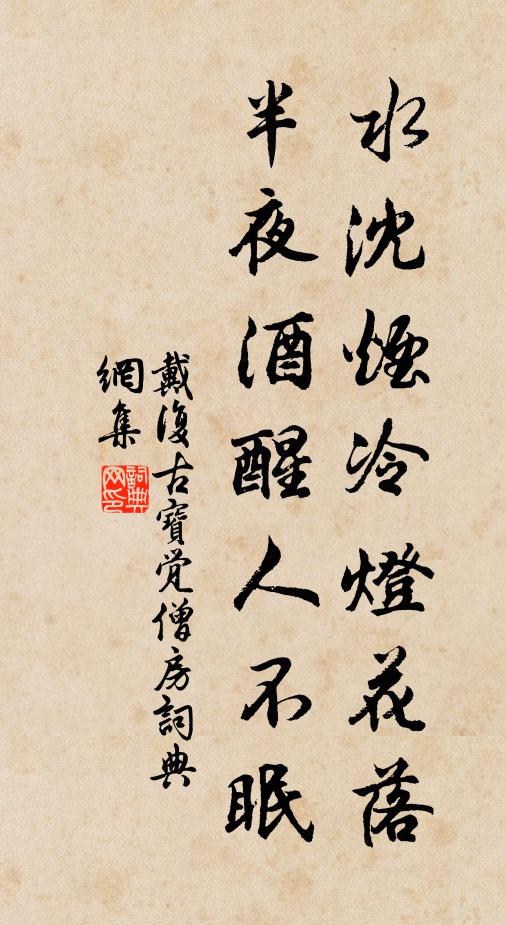 水沈煙冷燈花落
半夜酒醒人不眠
戴復古寶覚僧房詞典
網集
詞典
网印